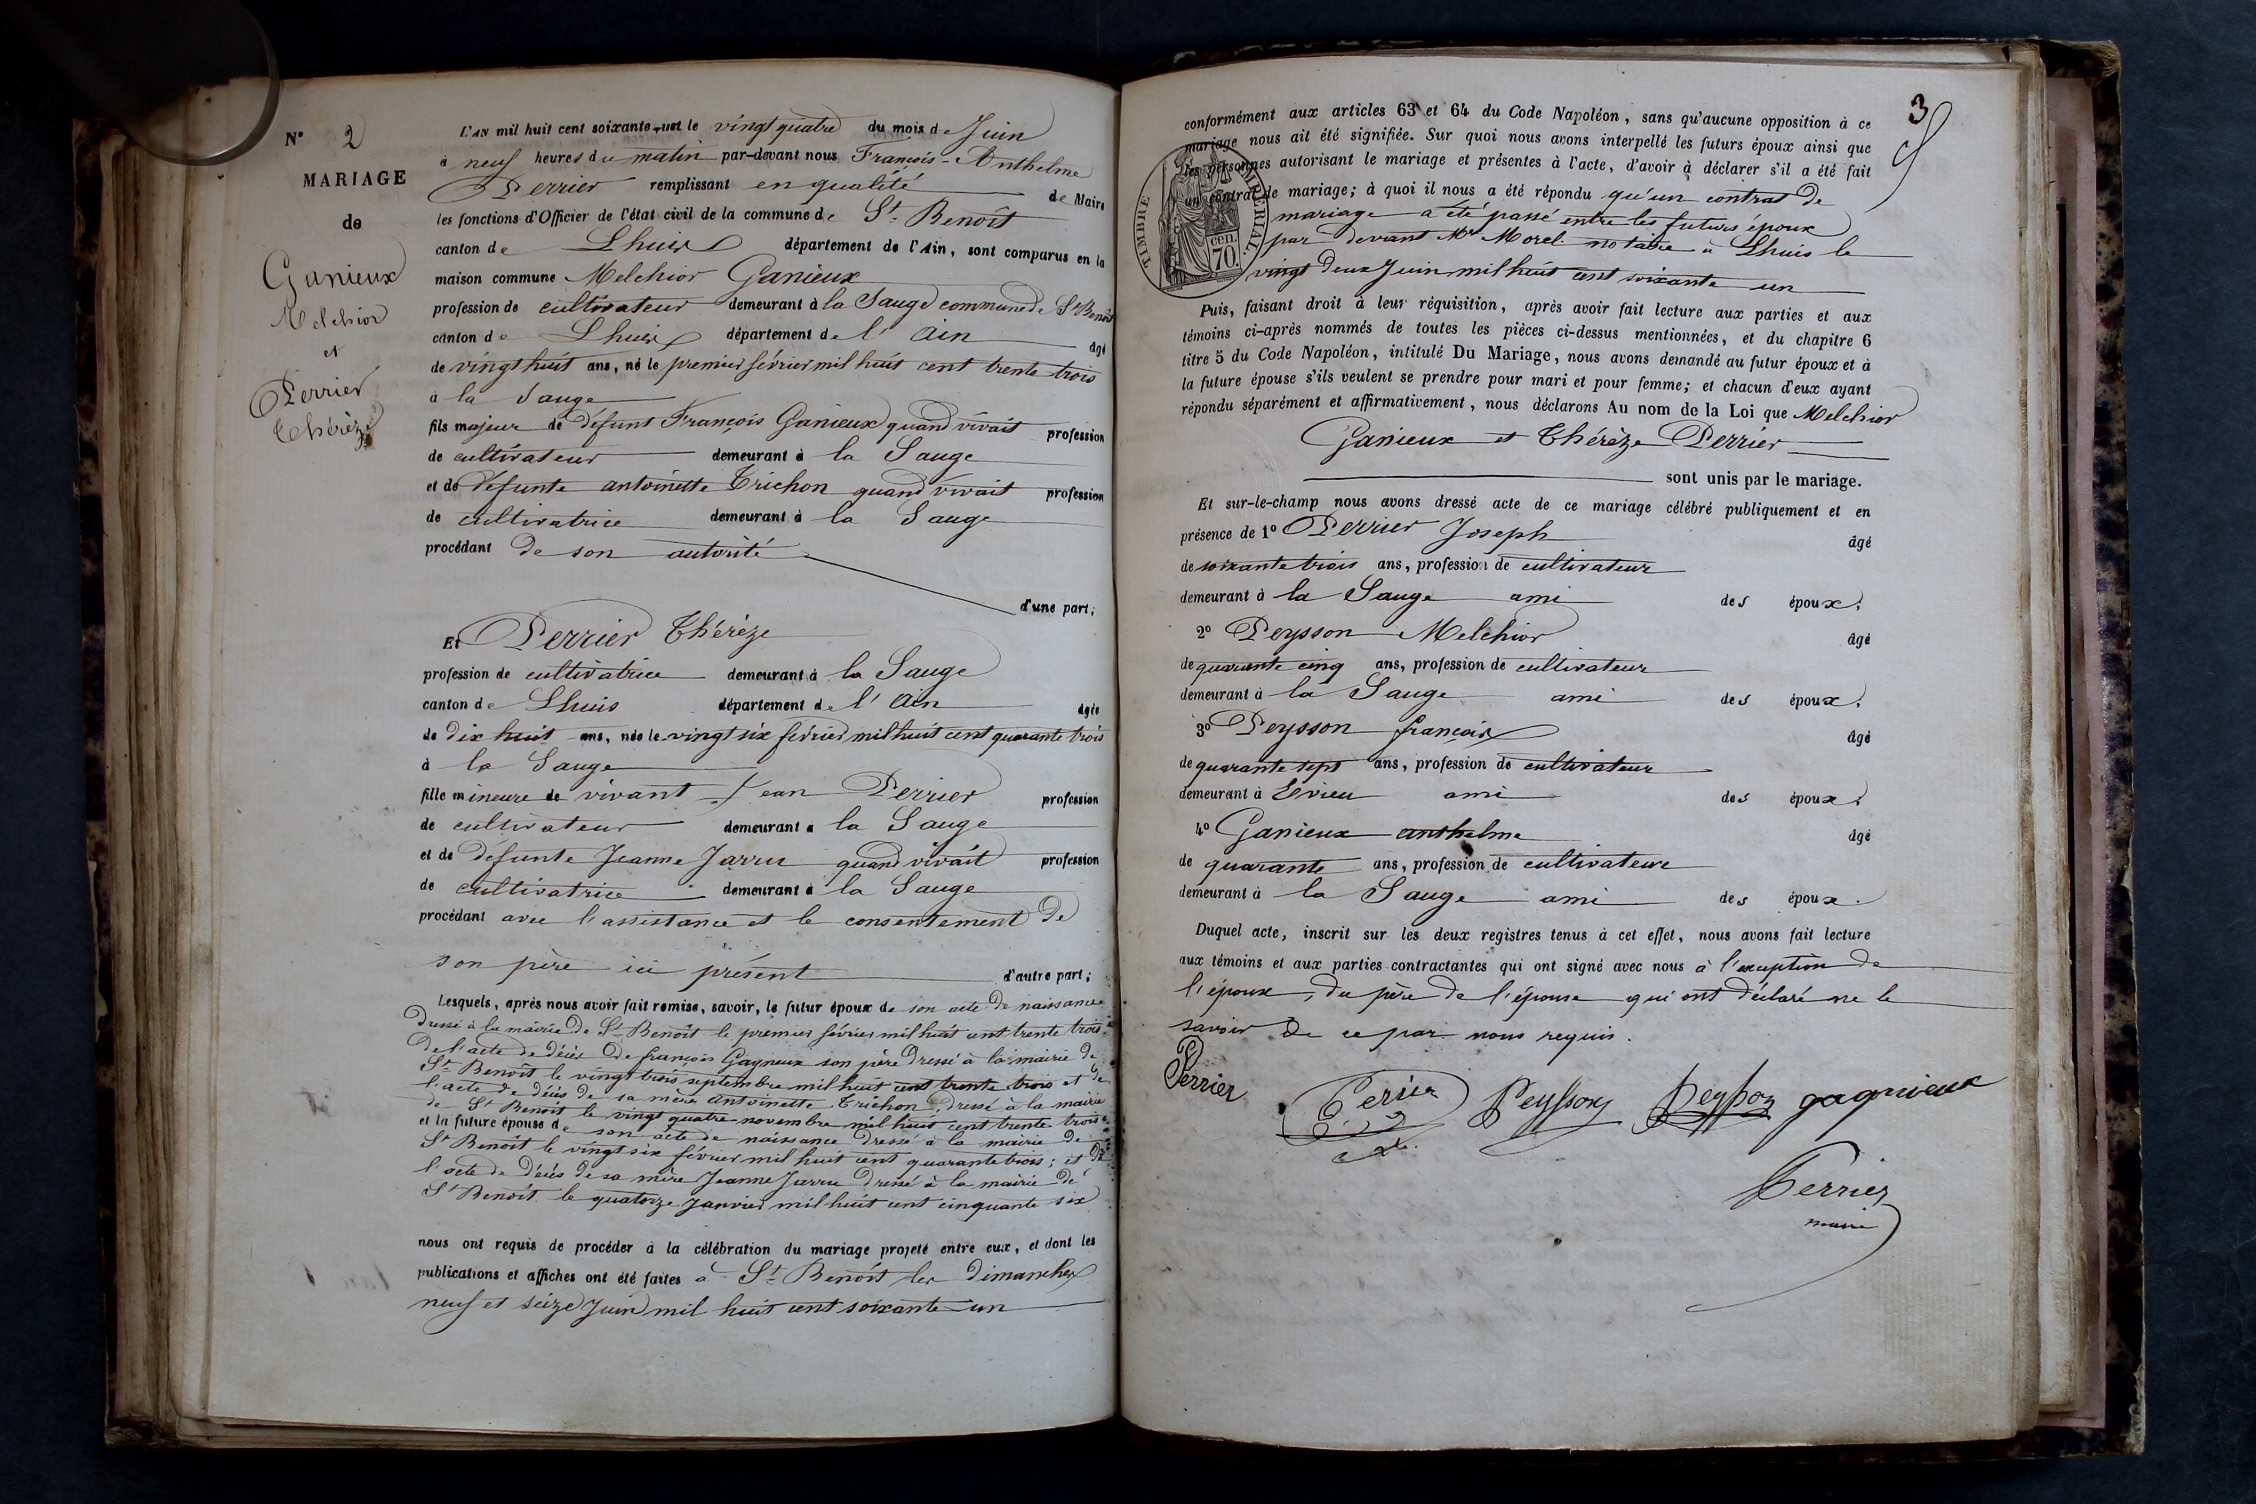 N° 2
MARIAGE
de
Ganieux
Melchior
et
Perrier
Thérèze
L'AN mil huit cent soixante-un le vingt quatre du mois de Juin
à neuf heures du matin par-devant nous François-Anthelme
Perrier remplissant en qualité de Maire
les fonctions d'Officier de l'état civil de la commune de St Benoît
canton de Lhuis département de l'Ain, sont comparus en la
maison commune Melchior Ganieux
profession de cultivateur demeurant à la Sauge commune de St Benoît
canton de Lhuis département de l'Ain âgé
de vingt huit ans, né le premier février mil huit cent trente trois
à la Sauge
fils majeur de défunt François Ganieux quand vivait profession
de cultivateur demeurant à la Sauge
et de défunte antoinette Trichon quand vivait profession
de cultivatrice demeurant à la Sauge
procédant de son autorité
d'une part;
Et Perrier Thérèze
profession de cultivatrice demeurant à la Sauge
canton de Lhuis département de l'Ain âgée
de dix huit ans, née le vingt six février mil huit cent quarante trois
à la Sauge
fille mineure de vivant Jean Perrier profession
de cultivateur demeurant à la Sauge
et de défunte Jeanne Jarru quand vivait profession
de cultivatrice demeurant à la Sauge
procédant avec l'assistance et le consentement de
son père ici présent d'autre part;
Lesquels, après nous avoir fait remise, savoir, le futur époux de son acte de naissance
dressé à la mairie de St Benoît le premier février mil huit cent trente trois
de l'acte de décès de françois Gagneux son père dressé à la mairie de
St Benoît le vingt trois septembre mil huit cent trente trois et de
l'acte de décès de sa mère Antoinette Trichon, dressé à la mairie
de St Benoît le vingt quatre novembre mil huit cent trente trois
et la future épouse de son acte de naissance dressé à la mairie de
St Benoît le vingt six février mil huit cent quarante trois; et de
l'acte de décès de sa mère Jeanne Jarru dressé à la mairie de
St Benoît le quatorze janvier mil huit cent cinquante six
nous ont requis de procéder à la célébration du mariage projeté entre eux, et dont les
publications et affiches ont été faites à St Benoît les dimanches
neuf et seize Juin mil huit cent soixante-un
3
conformément aux articles 63 et 64 du Code Napoléon, sans qu'aucune opposition à ce
mariage nous ait été signifiée. Sur quoi nous avons interpellé les futurs époux ainsi que
les personnes autorisant le mariage et présentes à l'acte, d'avoir à déclarer s'il a été fait
un contrat de mariage; à quoi il nous a été répondu qu'un contrat de
mariage a été passé entre les futurs époux
par devant Me Morel notaire à Lhuis le
vingt deux Juin mil huit cent soixante un
TIMBRE IMPERIAL
70 cen.
Puis, faisant droit à leur réquisition, après avoir fait lecture aux parties et aux
témoins ci-après nommés de toutes les pièces ci-dessus mentionnées, et du chapitre 6
titre 5 du Code Napoléon, intitulé Du Mariage, nous avons demandé au futur époux et à
la future épouse s'ils veulent se prendre pour mari et pour femme; et chacun d'eux ayant
répondu séparément et affirmativement, nous déclarons Au nom de la Loi que Melchior
Ganieux et Thérèze Perrier
sont unis par le mariage.
Et sur-le-champ nous avons dressé acte de ce mariage célébré publiquement et en
présence de 1° Perrier Joseph âgé
de soixante trois ans, profession de cultivateur
demeurant à la Sauge ami des époux;
2° Peysson Melchior âgé
de quarante cinq ans, profession de cultivateur
demeurant à la Sauge ami des époux;
3° Peysson françois âgé
de quarante sept ans, profession de cultivateur
demeurant à Evieu ami des époux;
4° Ganieux anthelme âgé
de quarante ans, profession de cultivateur
demeurant à la Sauge ami des époux.
Duquel acte, inscrit sur les deux registres tenus à cet effet, nous avons fait lecture
aux témoins et aux parties contractantes qui ont signé avec nous à l'exception de
l'époux, du père de l'épouse qui ont déclaré ne le
savoir de ce par nous requis.
Perrier
Perier Peysson Peysson gagnieux
Perrier
maire